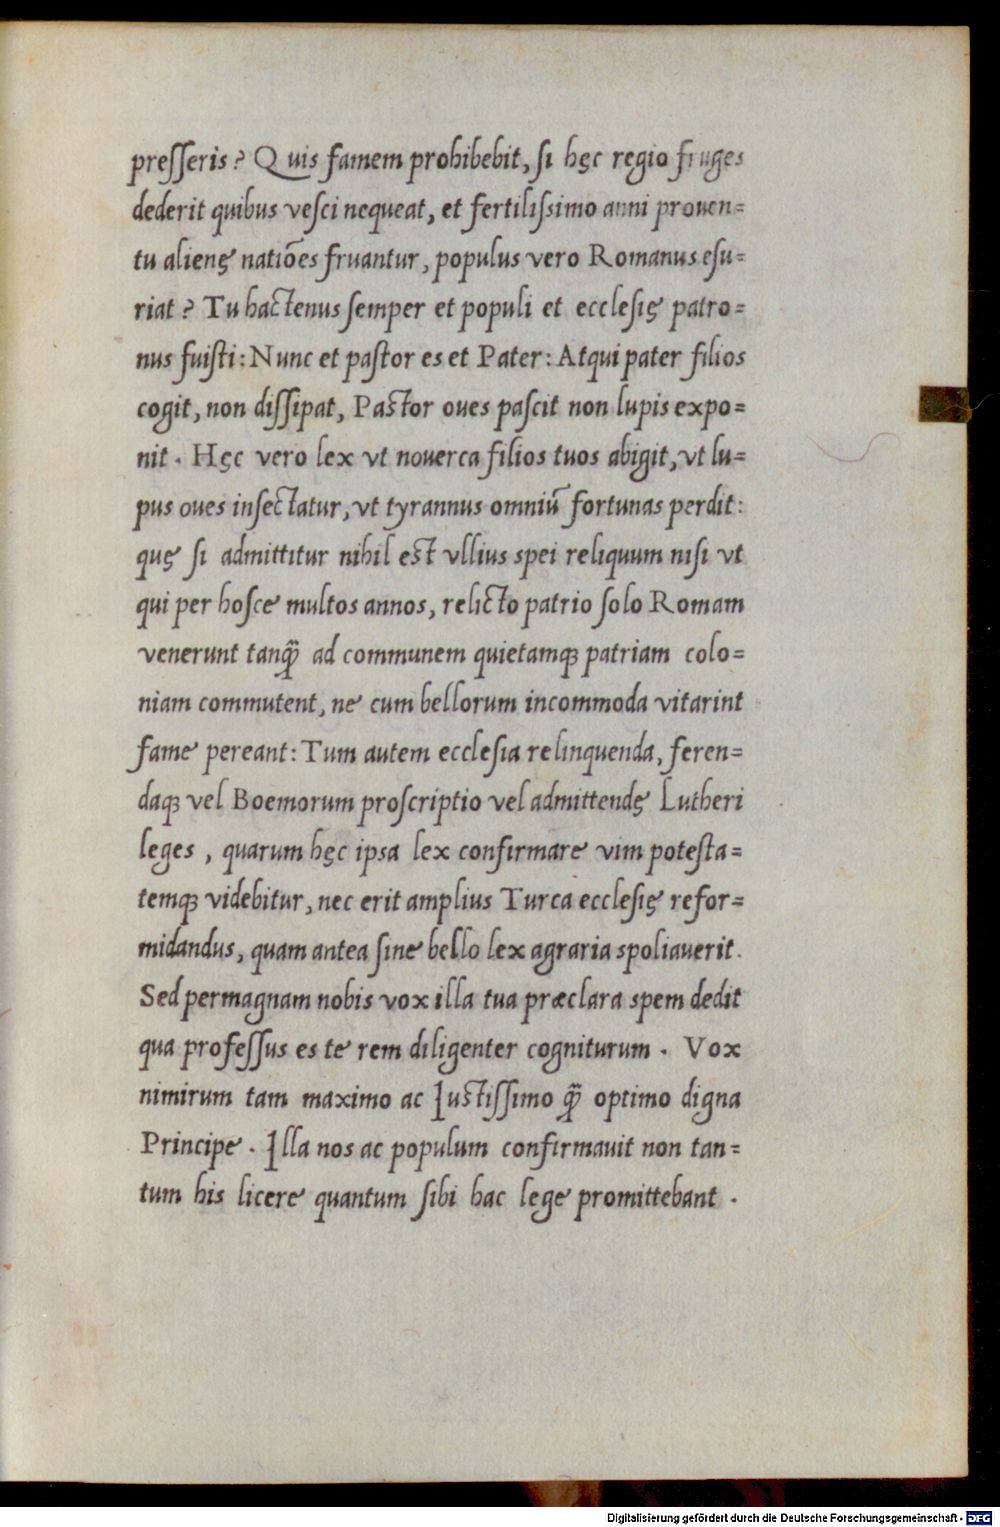 preſſeris? Quis famem prohibebit, ſi hęc regio fruges
dederit quibus veſci nequeat, et fertiliſsimo anni prouen=
tu alienę natiōes fruantur, populus vero Romanus eſu=
riat? Tu hactenus ſemper et populi et eccleſię patro=
nus fuiſti: Nunc et paſtor es et Pater: Atqui pater filios
cogit, non diſſipat, Pastor oues paſcit non lupis expo=
nit. Hęc vero lex vt nouerca filios tuos abigit, vt lu=
pus oues inſectatur, vt tyrannus omniū fortunas perdit:
quę ſi admittitur nihil est vllius spei reliquum niſi vt
qui per hoſce multos annos, relicto patrio ſolo Romam
venerunt tanꝙ̃ ad communem quietamqꝫ patriam colo=
niam commutent, ne cum bellorum incommoda vitarint
fame pereant: Tum autem eccleſia relinquenda, feren=
daqꝫ vel Boemorum proſcriptio vel admittendę Lutheri
leges, quarum hęc ipsa lex confirmare vim poteſta=
temqꝫ videbitur, nec erit amplius Turca eccleſię refor=
midandus, quam antea ſine bello lex agraria spoliauerit.
Sed permagnam nobis vox illa tua præclara spem dedit
qua profeſſus es te rem diligenter cogniturum. Vox
nimirum tam maximo ac Iustiſſimo ꝙ̃ optimo digna
Principe. Illa nos ac populum confirmauit non tan=
tum his licere quantum ſibi hac lege promittebant.
Digitalisierung gefördert durch die Deutsche Forschungsgemeinschaft - DFG